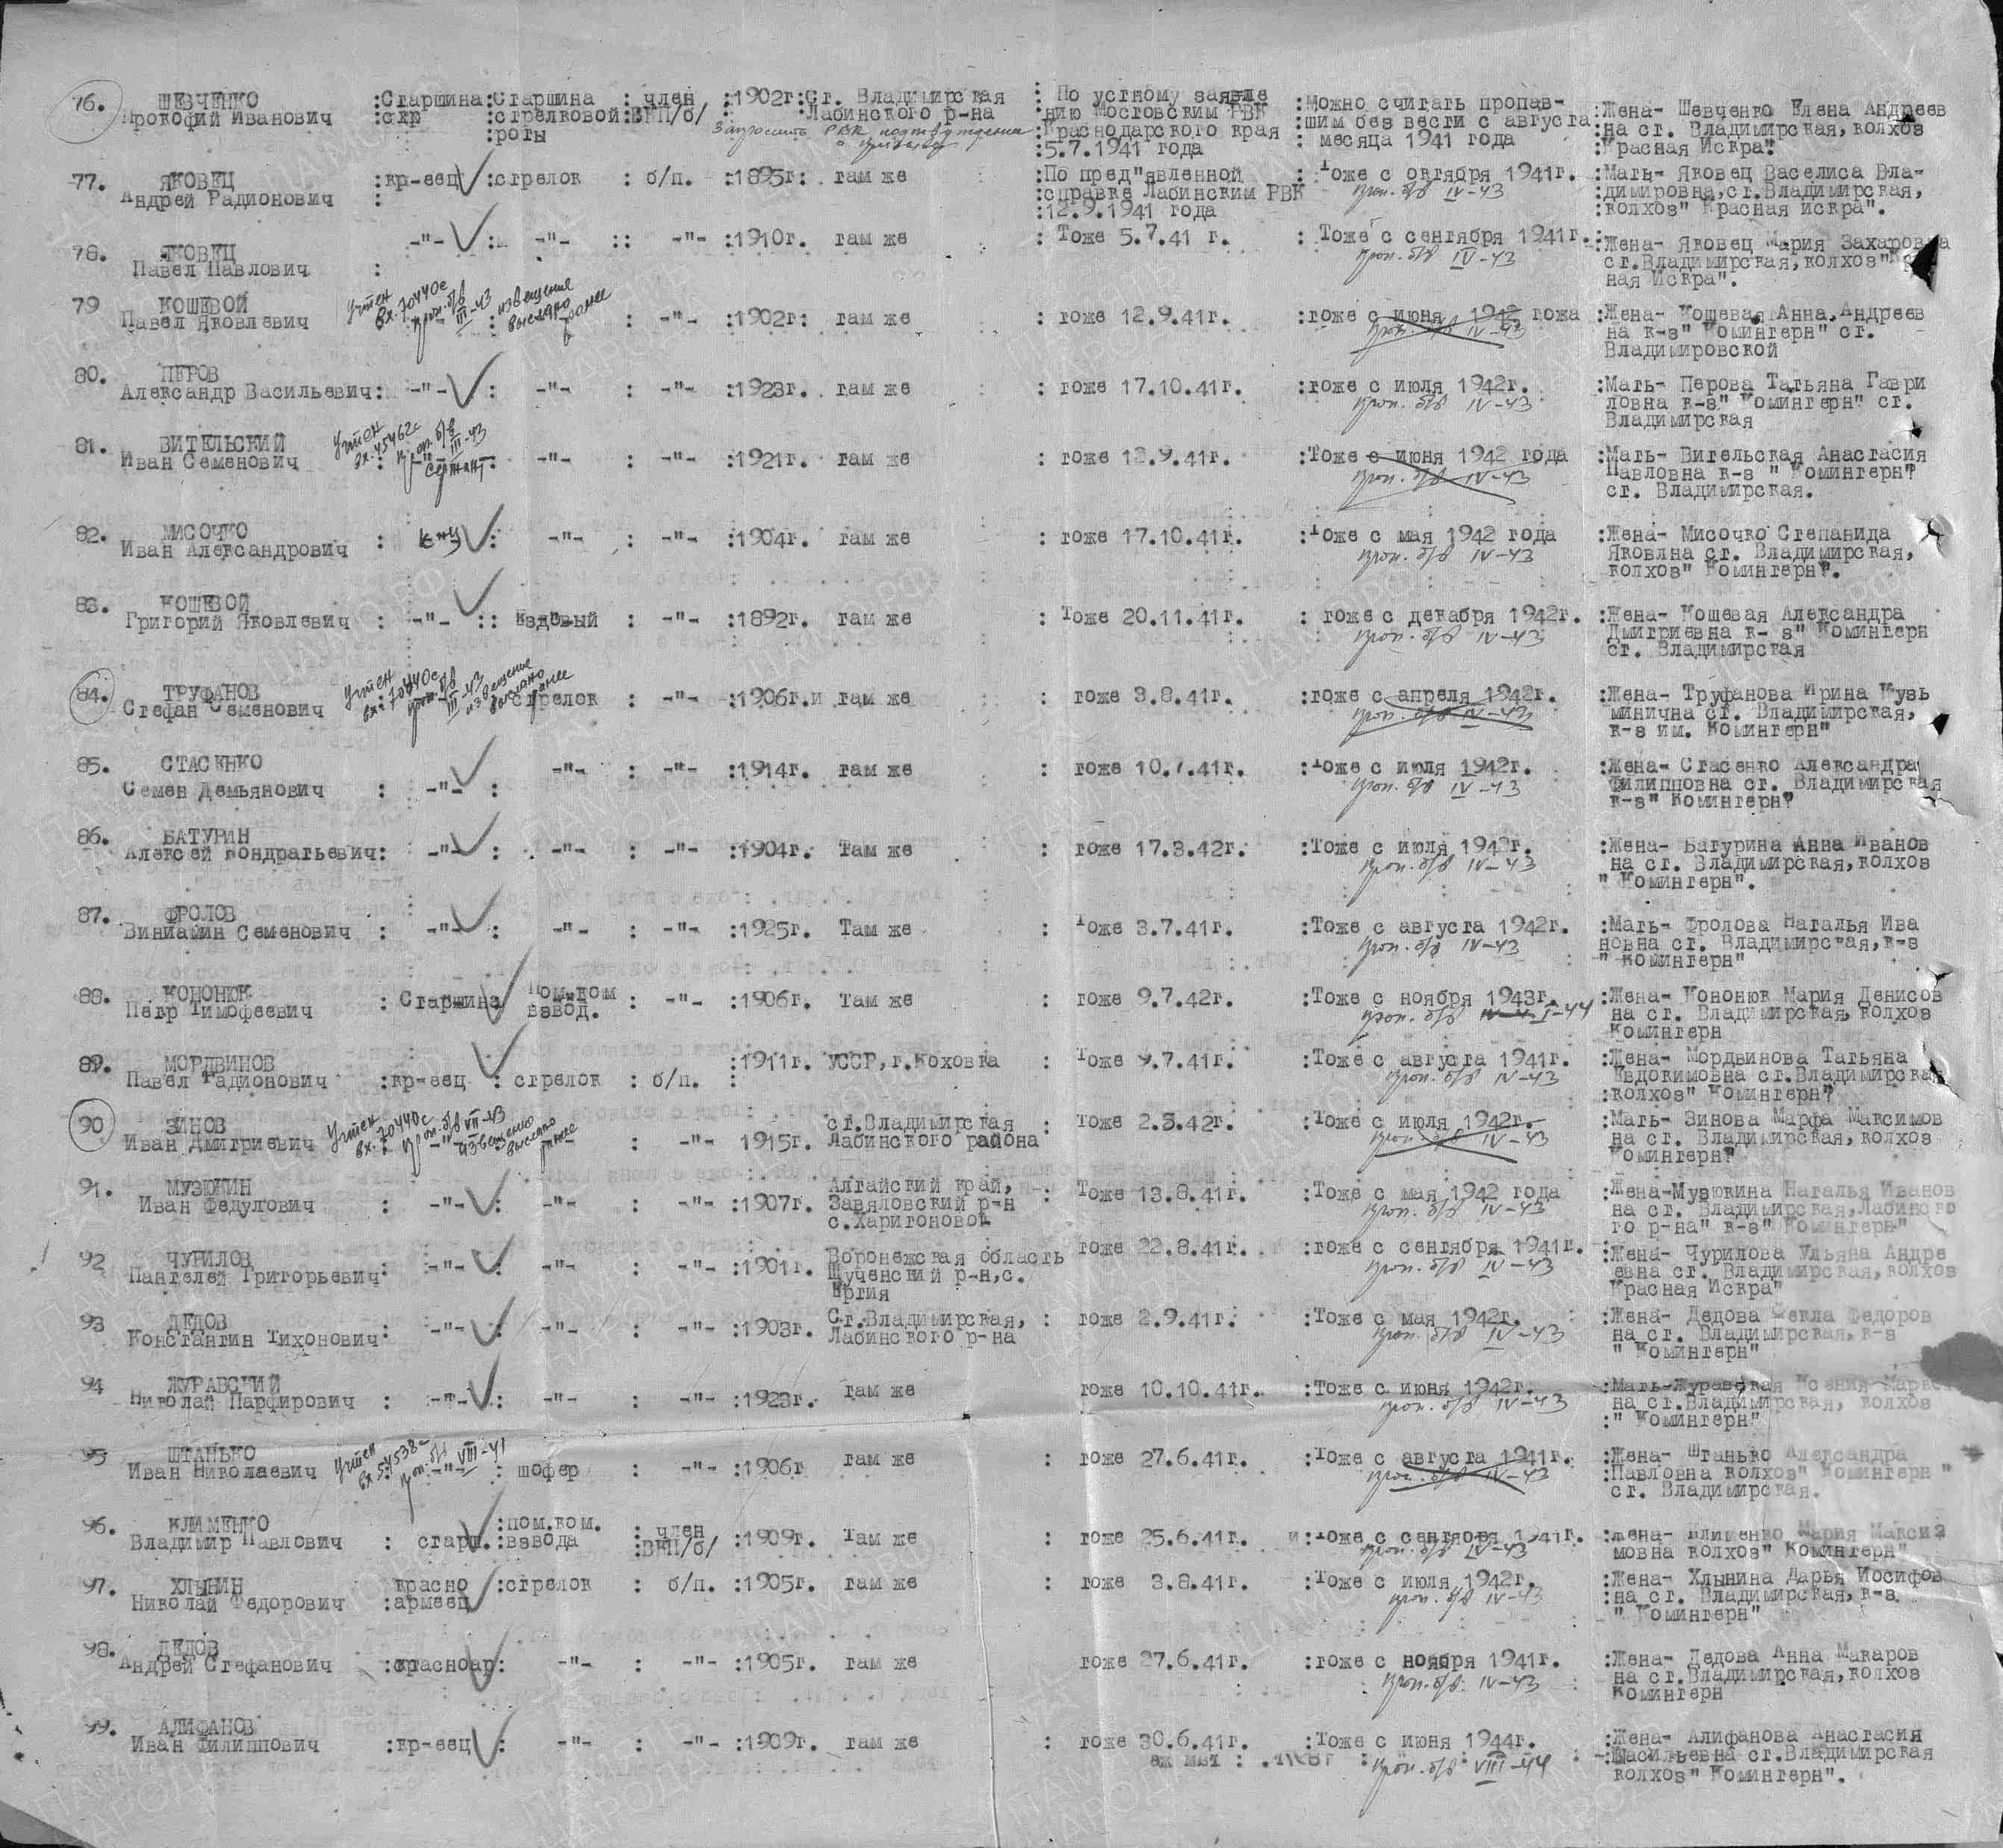 76. ШЕВЧЕНКО :Старшина:Старшина : член :1902г:Ст. Владимирская : По устному заявле :Можно считать пропав- :Жена- Шевченко Елена Андреев
Прокофий Иванович :скр :стрелковой:ВКП/б/ Лабинского р-на нию Мостовским РВК шим без вести с августа на ст. Владимирская, колхоз
:роты Запросить РВК подтверждения :Краснодарского края : месяца 1941 года :Красная Искра".
о призыве :5.7.1941 года
77. ЯКОВЕЦ :кр-еец :стрелок : б/п. :1895г: там же :По пред"явленной : Тоже с октября 1941г. :Мать- Яковец Васелиса Вла-
Андрей Радионович : :справке Лабинским РВК проп. б/в IV-43 :димировна,ст.Владимирская,
:12.9.1941 года :колхоз" Красная искра".
78. ЯКОВЕЦ -"- : -"- :: -"- :1910г. там же : Тоже 5.7.41 г. : Тоже с сентября 1941г. :Жена- Яковец Мария Захаровна
Павел Павлович : проп. б/в IV-43 ст.Владимирская, колхоз"
ная Искра".
79 КОШЕВОЙ учтен вх.70440с проп. б/в III-43 извещение выслано ранее
Павел Яковлевич : -"- :1902г: там же : тоже 12.9.41г. :тоже с июня 1942 года :Жена- Кошевая Анна Андреев
проп. б/в IV-43 на к-з" Комингерн" ст.
Владимировской
80. ПЕРОВ
Александр Васильевич: -"- : -"- : -"- :1923г. там же : тоже 17.10.41г. :тоже с июля 1942г. :Мать- Перова Татьяна Гаври
проп. б/в IV-43 ловна к-з" Комингерн" ст.
Владимирская
81. ВИТЕЛЬСКИЙ учтен вх.45462с проп. б/в III-43
Иван Семенович сержант : -"- : -"- :1921г. там же : тоже 12.9.41г. :Тоже с июня 1942 года :Мать- Вительская Анастасия
проп. б/в IV-43 Павловна к-з " Комингерн"
ст. Владимирская.
82. МИСОЧКО
Иван Александрович : : -"- : -"- :1904г. там же : тоже 17.10.41г. :Тоже с мая 1942 года :Жена- Мисочко Степанида
проп. б/в IV-43 Яковлна ст. Владимирская,
колхоз" Комингерн".
83. КОШЕВОЙ
Григорий Яковлевич : -"- :: ездовый : -"- :1892г. там же : Тоже 20.11.41г. : тоже с декабря 1942г. :Жена- Кошевая Александра
проп. б/в IV-43 Дмитриевна к- з" Комингерн
ст. Владимирская
84. ТРУФАНОВ учтен вх.70440с проп. б/в III-43 извещение выслано ранее
Стефан Семенович стрелок : -"- :1906г.и там же : тоже 3.8.41г. :тоже с апреля 1942г. :Жена- Труфанова Ирина Кузь
проп. б/в IV-43 минична ст. Владимирская,
к-з им. Комингерн"
85. СТАСЕНКО -"- : -"- :1914г. там же : тоже 10.7.41г. :Тоже с июля 1942г. :Жена- Стасенко Александра
Семен Демьянович : -"- : проп. б/в IV-43 Филипповна ст. Владимирская
к-з" Комингерн"
86. БАТУРИН
Алексей Кондратьевич: -"- : -"- : -"- :1904г. Там же : тоже 17.3.42г. :Тоже с июля 1942г. :Жена- Батурина Анна Иванов
проп. б/в IV-43 на ст. Владимирская,колхоз
" Комингерн".
87. ФРОЛОВ
Виниамин Семенович : -"- : -"- : -"- :1925г. Там же : Тоже 3.7.41г. :Тоже с августа 1942г. :Мать- Фролова Наталья Ива
проп. б/в IV-43 новна ст. Владимирская,к-з
" Комингерн"
88. КОНОНЮК : Старшина Пом.ком : -"- :1906г. Там же : тоже 9.7.42г. :Тоже с ноября 1943г. :Жена- Кононюк Мария Денисов
Петр Тимофеевич взвод. проп. б/в I-44 на ст. Владимирская, колхоз
Комингерн
89. МОРДВИНОВ :1911г. УССР,г.Коховка : Тоже 9.7.41г. :Тоже с августа 1941г. :Жена- Мордвинова Татьяна
Павел Радионович :кр-еец : стрелок : б/п. : проп. б/в IV-43 Евдокимовна ст.Владимирская
:колхоз" Комингерн"
90 ЗИНОВ учтен вх.70440с проп. б/в VII-43 извещение выслано ранее ст.Владимирская : Тоже 2.5.42г. :Тоже с июля 1942г. :Мать- Зинова Марфа Максимов
Иван Дмитриевич -"- : -"- 1915г. Лабинского района проп. б/в IV-43 на ст. Владимирская, колхоз
Комингерн"
91. МУЗЮКИН Алтайский край, : Тоже 13.8.41г. :Тоже с мая 1942 года :Жена-Музюкина Наталья Иванов
Иван Федулович : -"- : -"- : -"- :1907г. Завяловский р-н проп. б/в IV-43 на ст. Владимирская,Лабинско
с.Харитоновой го р-на" к-з" Комингерн"
92 ЧУРИЛОВ Воронежская область тоже 22.8.41г. :тоже с сентября 1941г. :Жена- Чурилова Ульяна Андре
Пантелей Григорьевич: -"- : -"- : -"- :1901г. Щученский р-н,с. проп. б/в IV-43 евна ст. Владимирская,колхоз
Красная Искра"
93 ДЕДОВ Ст.Владимирская, : тоже 2.9.41г. :Тоже с мая 1942г. :Жена- Дедова Фекла Федоров
Константин Тихонович: -"- : -"- : -"- :1903г. Лабинского р-на проп. б/в IV-43 на ст. Владимирская, к-з
" Комингерн"
94 ЖУРАВСКИЙ там же тоже 10.10.41г. :Тоже с июня 1942г. :Мать-Журавская Ксения
Николай Парфирович : -"- : -"- : -"- :1923г. проп. б/в IV-43 на ст.Владимирская, колхоз
:" Комингерн"
95 ШТАНЬКО учтен вх.54538с проп. б/в VIII-41 там же : тоже 27.6.41г. :Тоже с августа 1941г. :Жена- Штанько Александра
Иван Николаевич -"- : шофер : -"- :1906г проп. б/в IV-43 :Павловна колхоз" Комингерн "
ст. Владимирская.
96. КЛИМЕНКО :пом.ком. : член
Владимир Павлович : старш. :взвода :ВКП/б/ :1909г. Там же : тоже 25.6.41г. и:Тоже с сентября 1941г. :Жена- Клименко Мария Максим
проп. б/в IV-43 мовна колхоз" Комингерн"
97. ХЛЫНИН красно :стрелок : б/п. :1905г. там же : тоже 3.8.41г. :Тоже с июля 1942г. :Жена- Хлынина Дарья Иосифов
Николай Федорович :армеец проп. б/в IV-43 :на ст. Владимирская, к-з.
" Комингерн"
98. ДЕДОВ
Андрей Стефанович :красноар: -"- : -"- :1905г. там же тоже 27.6.41г. :тоже с ноября 1941г. :Жена- Дедова Анна Макаров
проп. б/в. IV-43 на ст.Владимирская,колхоз
Комингерн
99. АЛИФАНОВ
Иван Филиппович :кр-еец : -"- : -"- :1909г. там же : тоже 30.6.41г. :Тоже с июня 1944г. :Жена- Алифанова Анастасия
проп. б/в VIII-44 Васильевна ст.Владимирская
колхоз" Комингерн".